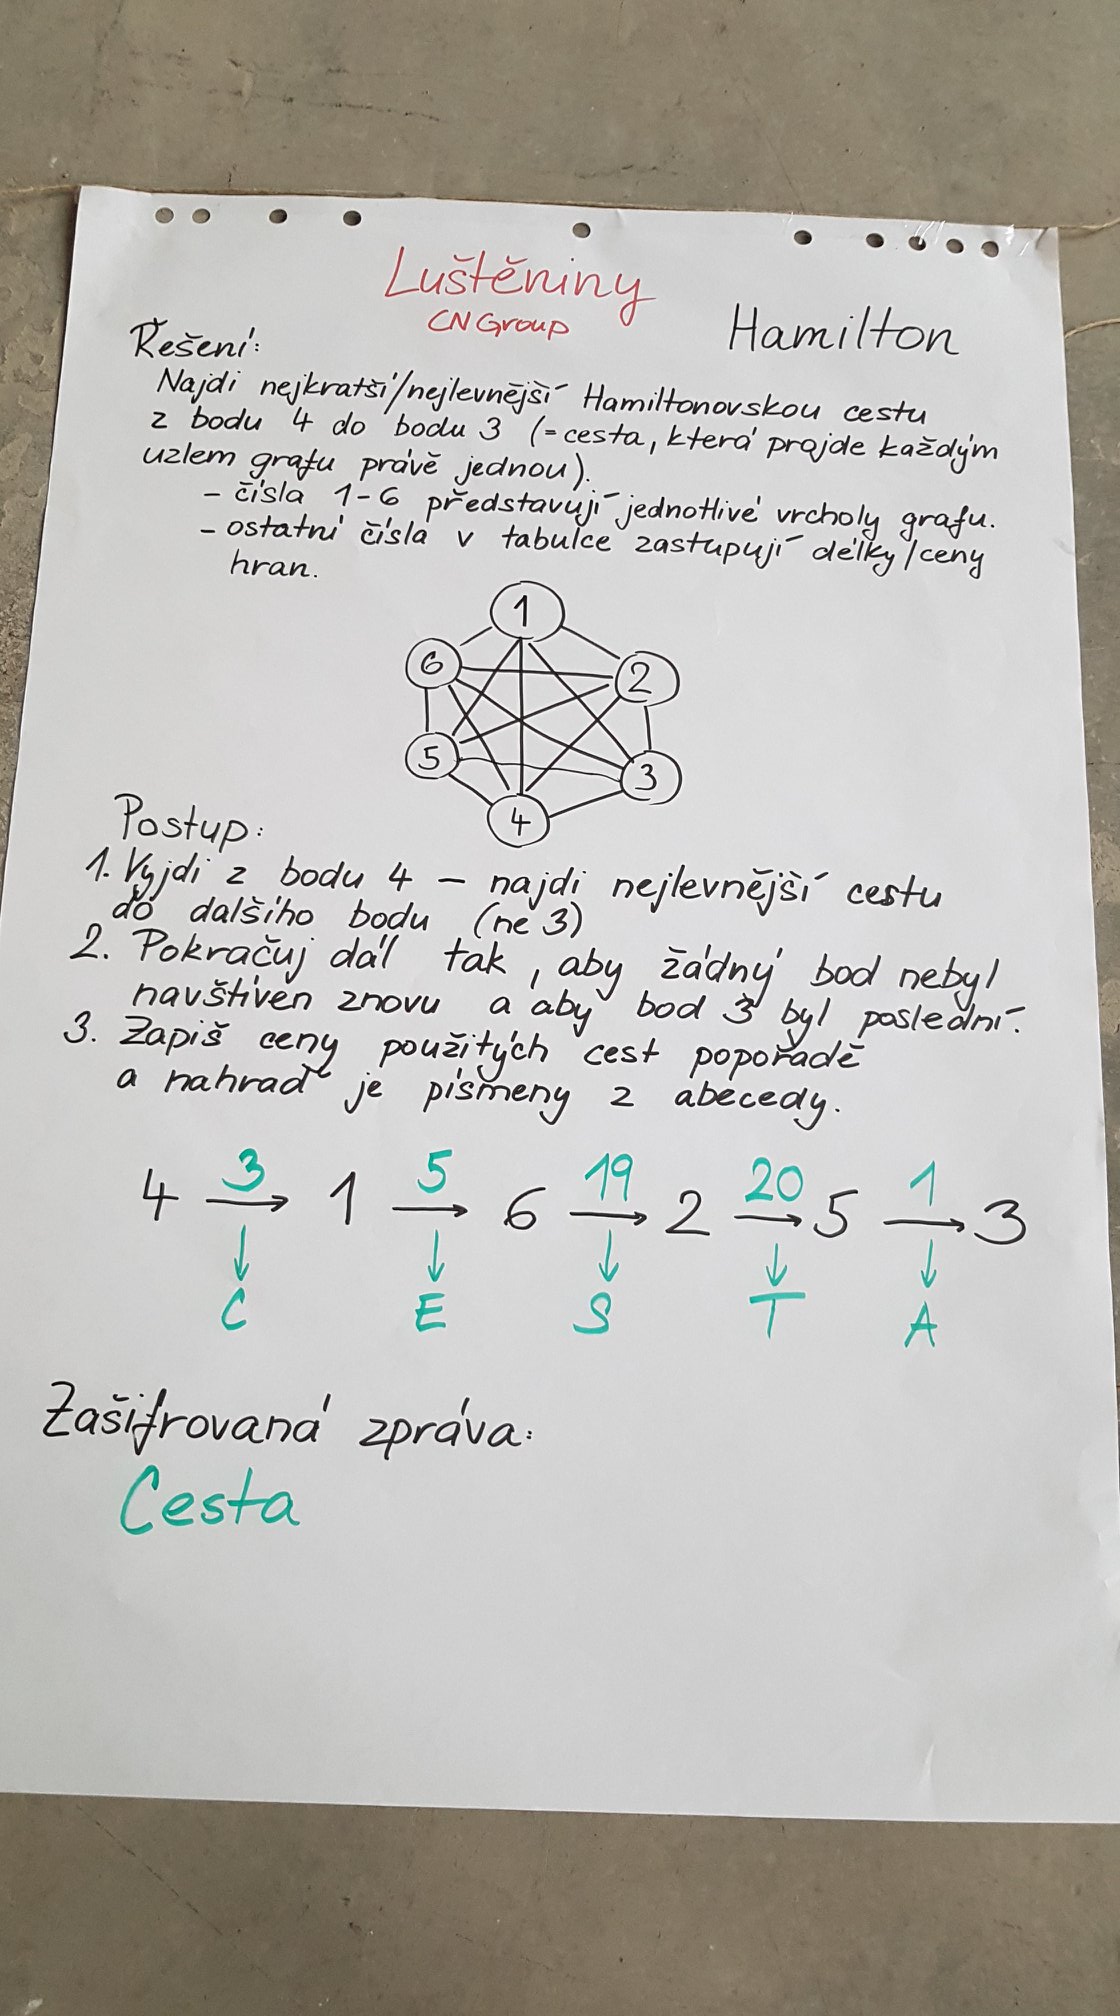 Luštěniny
CN Group
Hamilton
Řešení:
Najdi nejkratší/nejlevnější Hamiltonovskou cestu
z bodu 4 do bodu 3 (=cesta, která projde každým
uzlem grafu právě jednou).
- čísla 1-6 představují jednotlivé vrcholy grafu.
- ostatní čísla v tabulce zastupují délky/ceny
hran.
1
6
2
5
3
4
Postup:
1. Vyjdi z bodu 4 - najdi nejlevnější cestu
do dalšího bodu (ne 3)
2. Pokračuj dál tak, aby žádný bod nebyl
navštíven znovu a aby bod 3 byl poslední.
3. Zapiš ceny použitých cest popořadě
a nahraď je písmeny z abecedy.
3 5 19 20 1
4 → 1 → 6 → 2 → 5 → 3
↓ ↓ ↓ ↓ ↓
C E S T A
Zašifrovaná zpráva:
Cesta